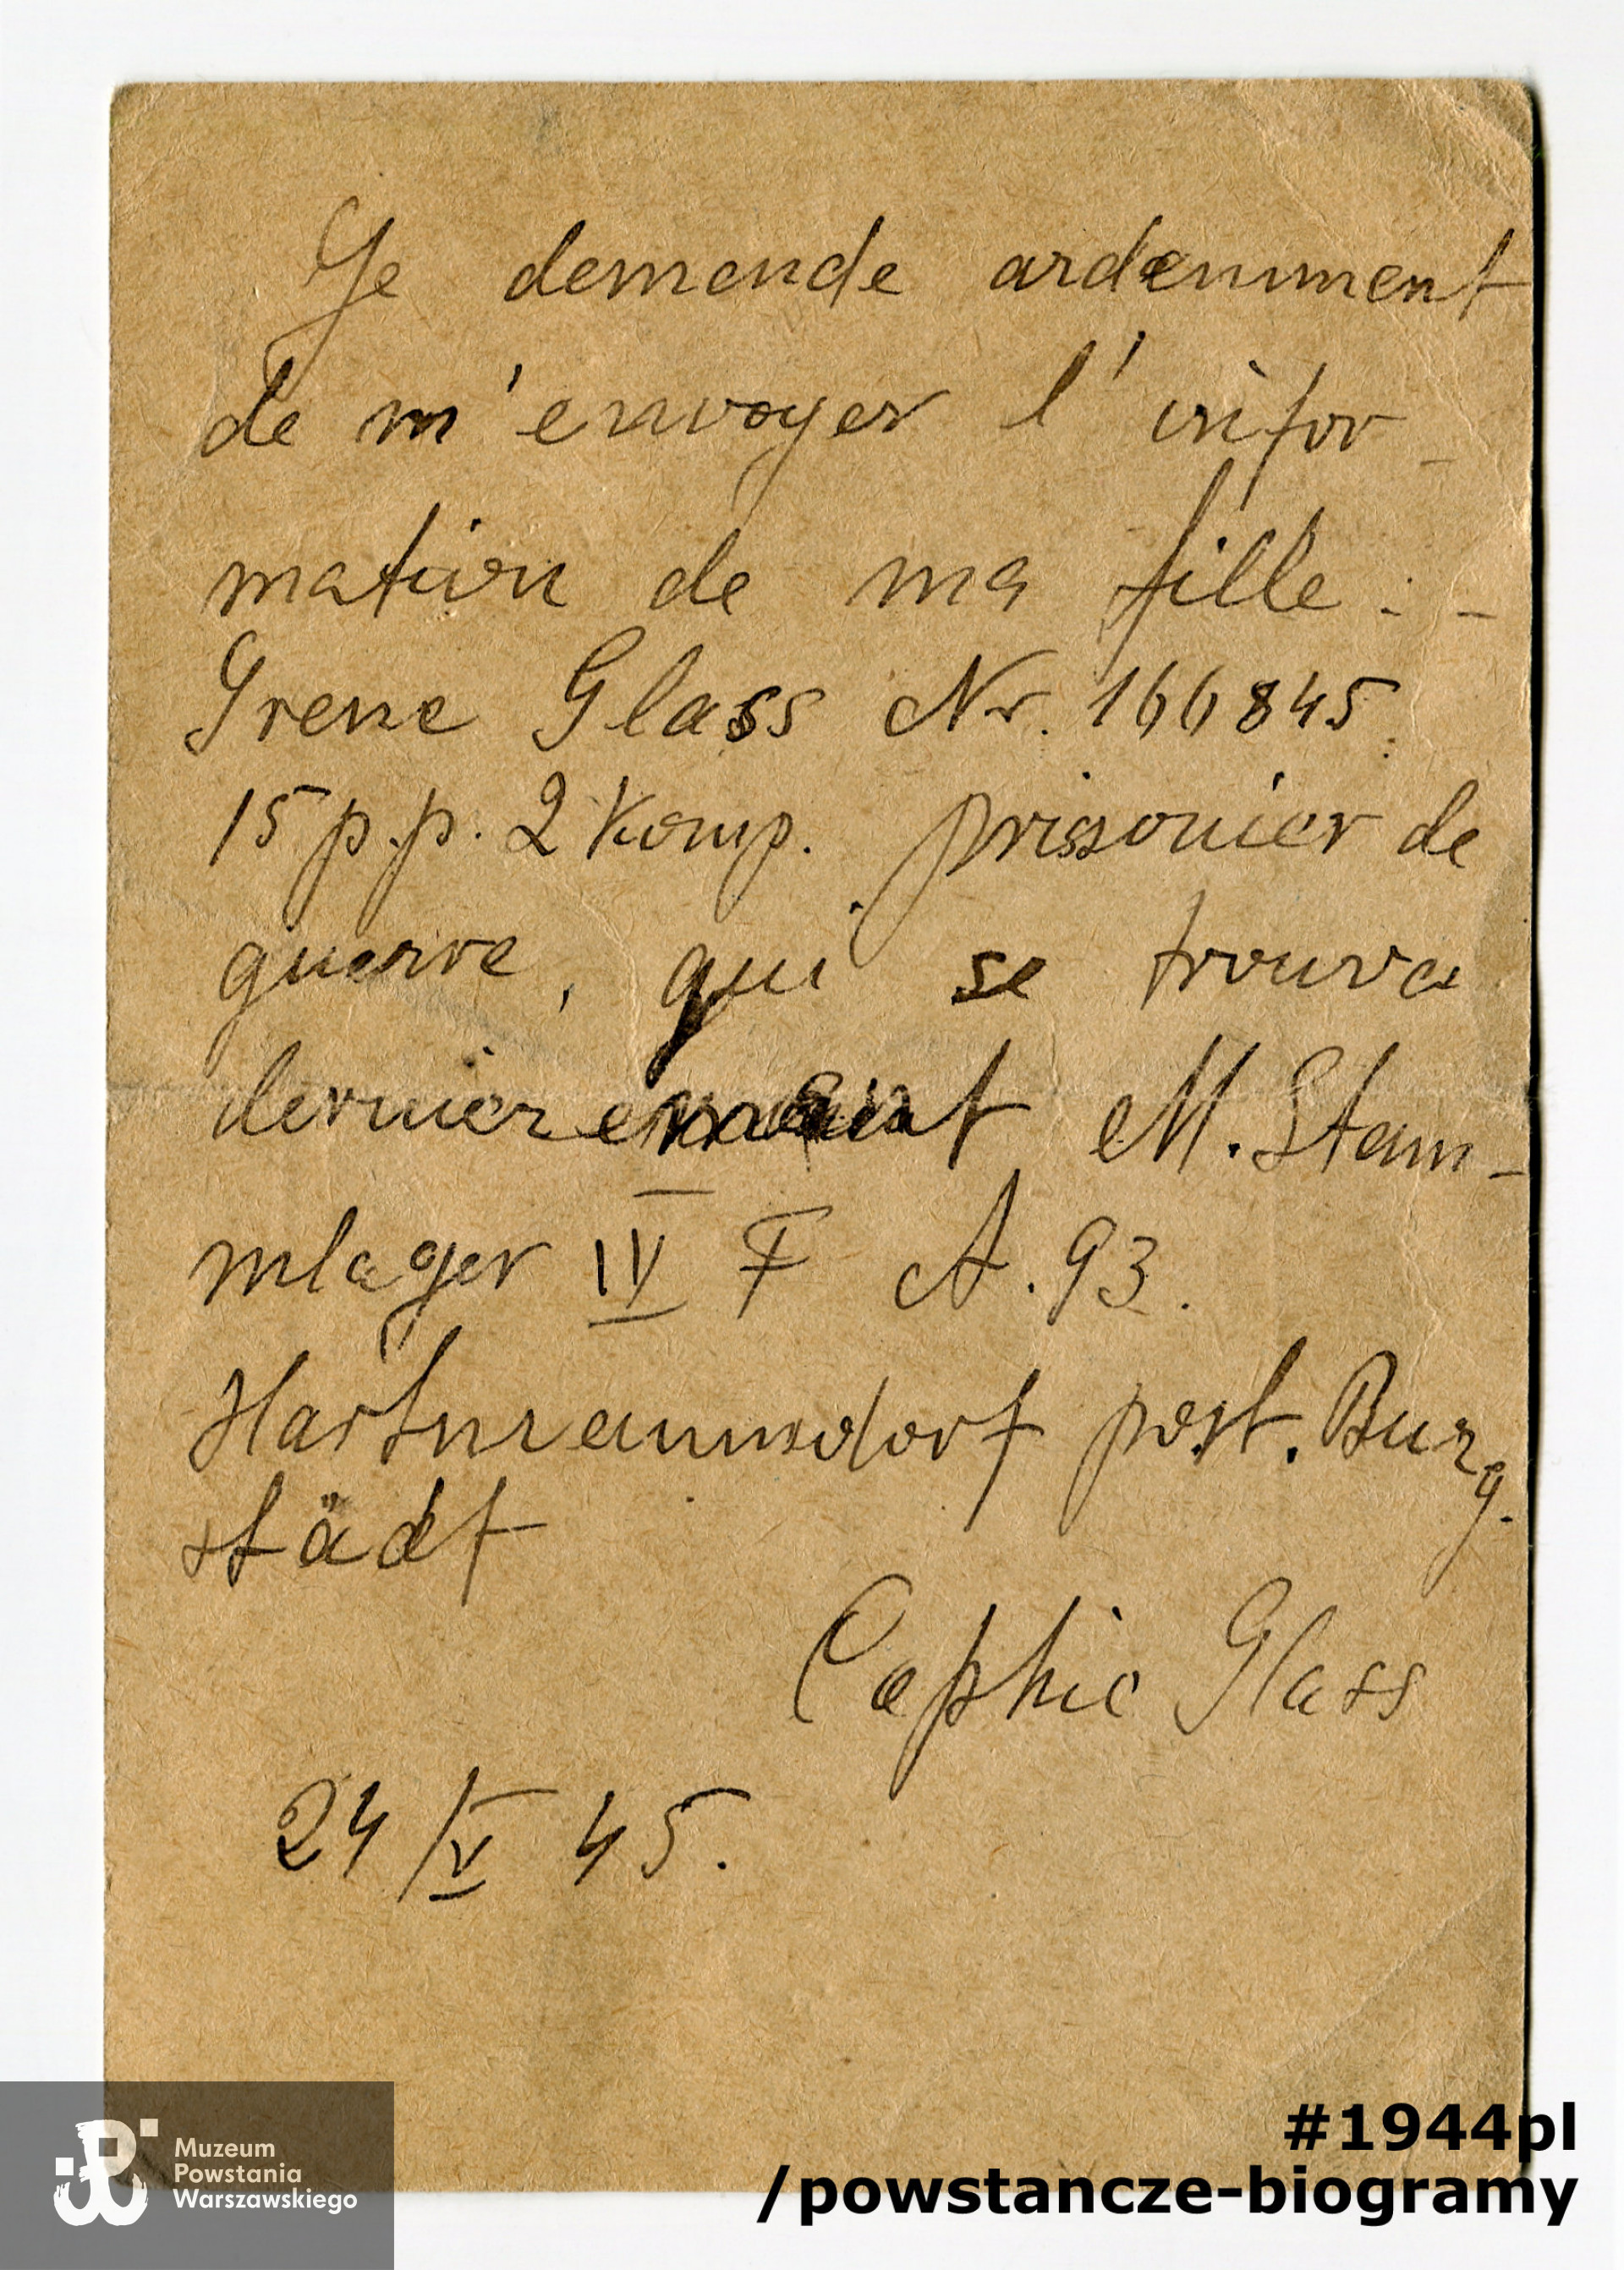 Je demende ardemment
de m'envoyer l'infor-
mation de ma fille : -
Irene Glass Nr. 166845.
15 p.p. 2 Komp. prissonier de
guerre, qui se trouva
dernierement M. Stam-
mlager IV F A. 93.
Hartmannsdorf post. Burg.
städt
Cophie Glass
24/V 45.
Muzeum
Powstania
Warszawskiego
#1944pl
/powstancze-biogramy